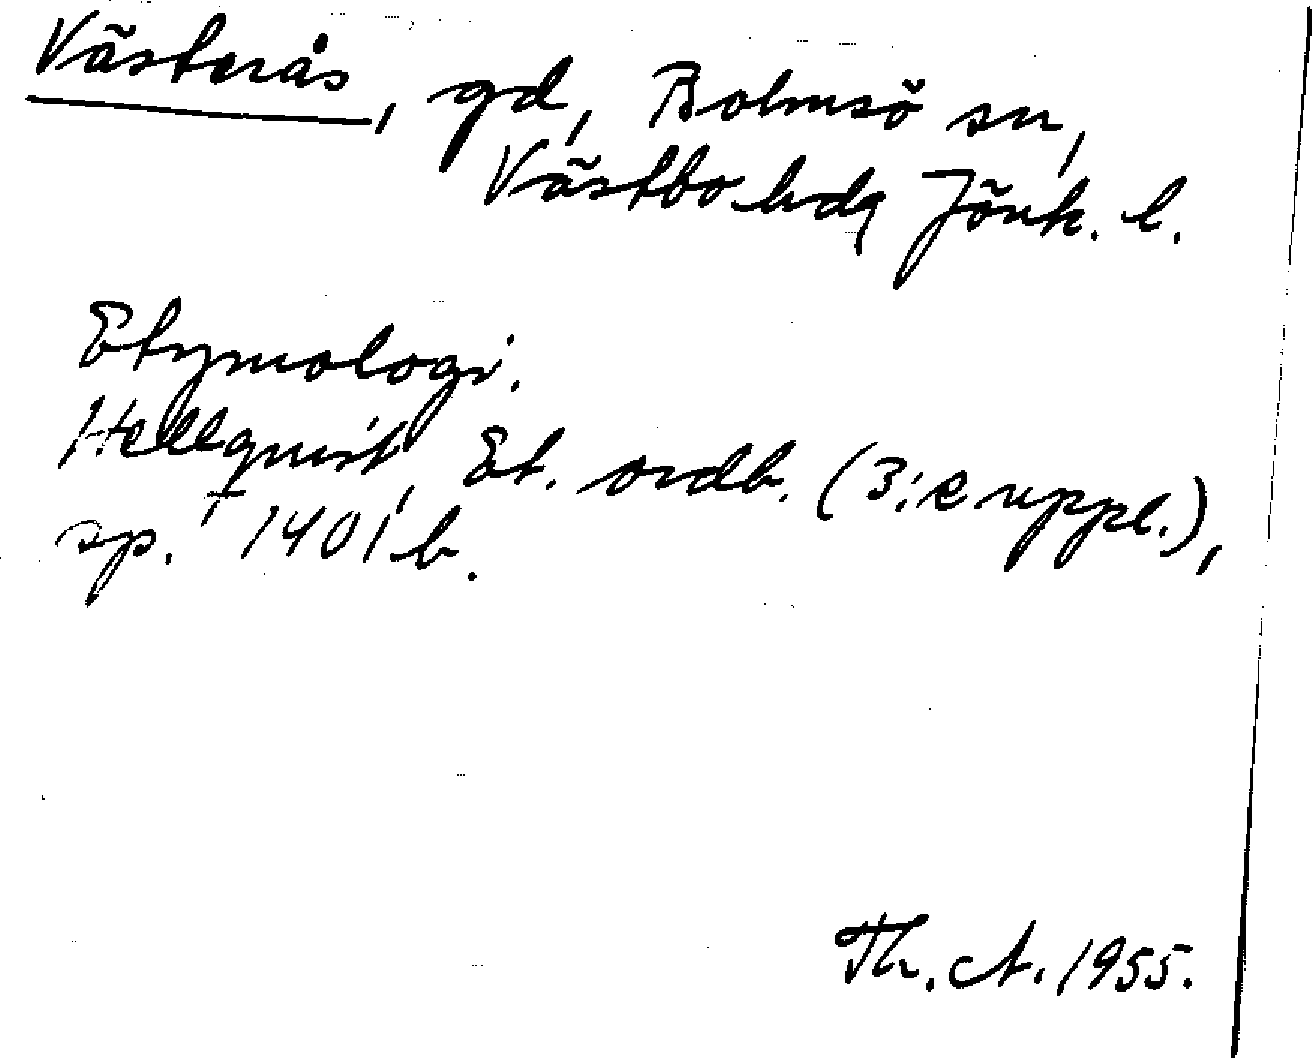 Västerås, gd, Bolmsö sn,
Västbo hdq Jönk. l.
Etymologi.
Hellquist, Et. ordb. (3:e uppl.),
sp. 1401 b.
Th. A. 1955.